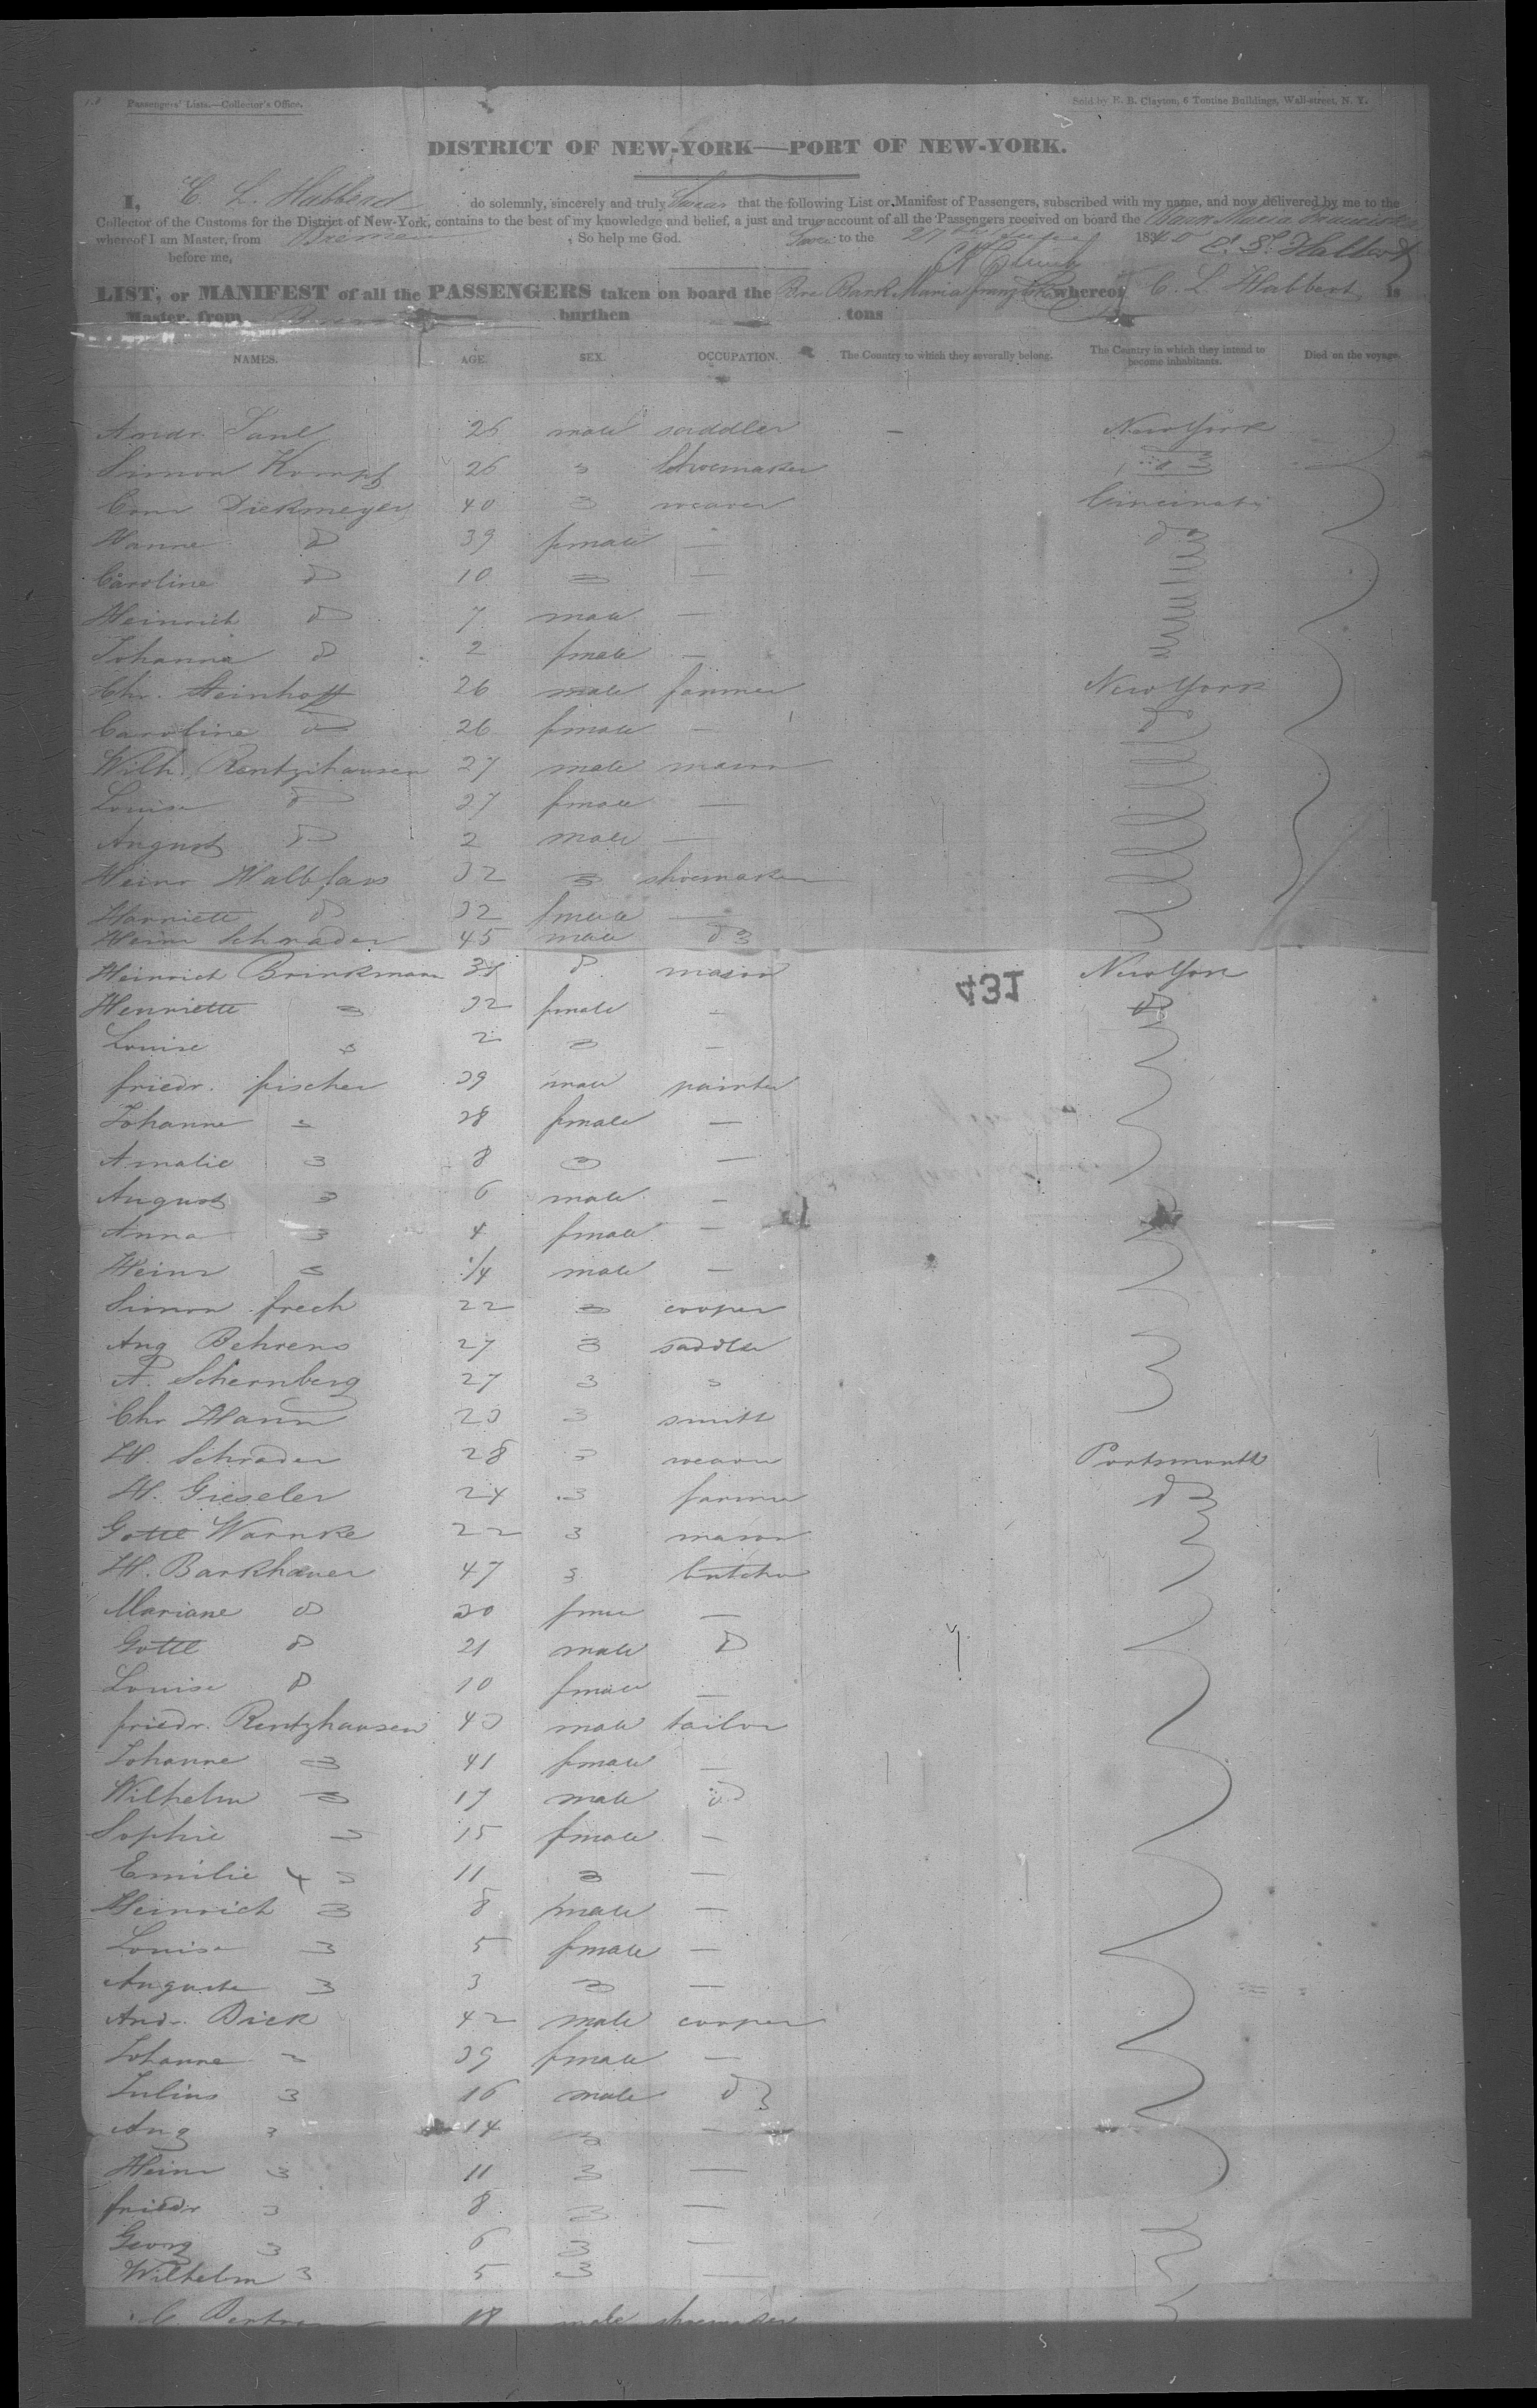 Passengers' Lists.—Collector's Office.
Sold by E. B. Clayton, 6 Tontine Buildings, Wall-street, N. Y.
DISTRICT OF NEW-YORK—PORT OF NEW-YORK.
I, C. L. Habberd do solemnly, sincerely and truly Swear that the following List or Manifest of Passengers, subscribed with my name, and now delivered by me to the
Collector of the Customs for the District of New-York, contains to the best of my knowledge and belief, a just and true account of all the Passengers received on board the Bark Maria
whereof I am Master, from Bremen , So help me God. to the 27th 1840
before me,
LIST, or MANIFEST of all the PASSENGERS taken on board the Bre Bark Maria whereof C. L. Habbert is
Master, from burthen tons
NAMES. AGE. SEX. OCCUPATION. The Country to which they severally belong. The Country in which they intend to become inhabitants. Died on the voyage.
26 male saddler — New York
Simon 26 " Shoemaker
Conr Diekmeyer 40 " weaver Cincinati
Hanne do 39 female — do
Caroline do 10 " —
Heinrich do 7 male —
Johanne do 2 female —
Chr. Steinhoff 26 male farmer New York
Caroline do 26 female — do
Wilh. Rentzihausen 27 male mason
Louise do 27 female —
August do 2 male —
Heinr Halbfass 32 " shoemaker
Harriette do 32 female —
Heinr Schrader 45 male do
Heinrich Brinkmann 31 do mason New York
431
Henriette " 32 female — do
Louise " 2 " —
friedr. fischer 39 male painter
Johanne " 38 female —
Amalie " 8 " —
August " 6 male —
Anna " 4 female —
Heinr " 1/4 male —
Simon frech 22 " cooper
Aug Behrens 27 " saddler
A. Schernberg 27 " "
Chr Hann 23 " smith
H. Schrader 28 " weaver Portsmouth
H. Gieseler 24 " farmer do
Gottl Warnke 22 " mason
H. Barkhauer 47 " butcher
Mariane do 30 —
Gottl do 21 male do
Louise do 10 female —
friedr. Rentzhausen 43 male tailor
Johanne " 41 female —
Wilhelm " 17 male do
Sophie " 15 female —
Emilie x " 11 " —
Heinrich " 8 male —
Louise " 5 female —
Auguste " 3 " —
And. Dick 42 male cooper
Johanne " 39 female —
Julius " 16 male do
Aug " 14 " —
Heinr " 11 " —
friedr " 8 " —
Georg " 6 " —
Wilhelm " 5 " —
18 male shoemaker